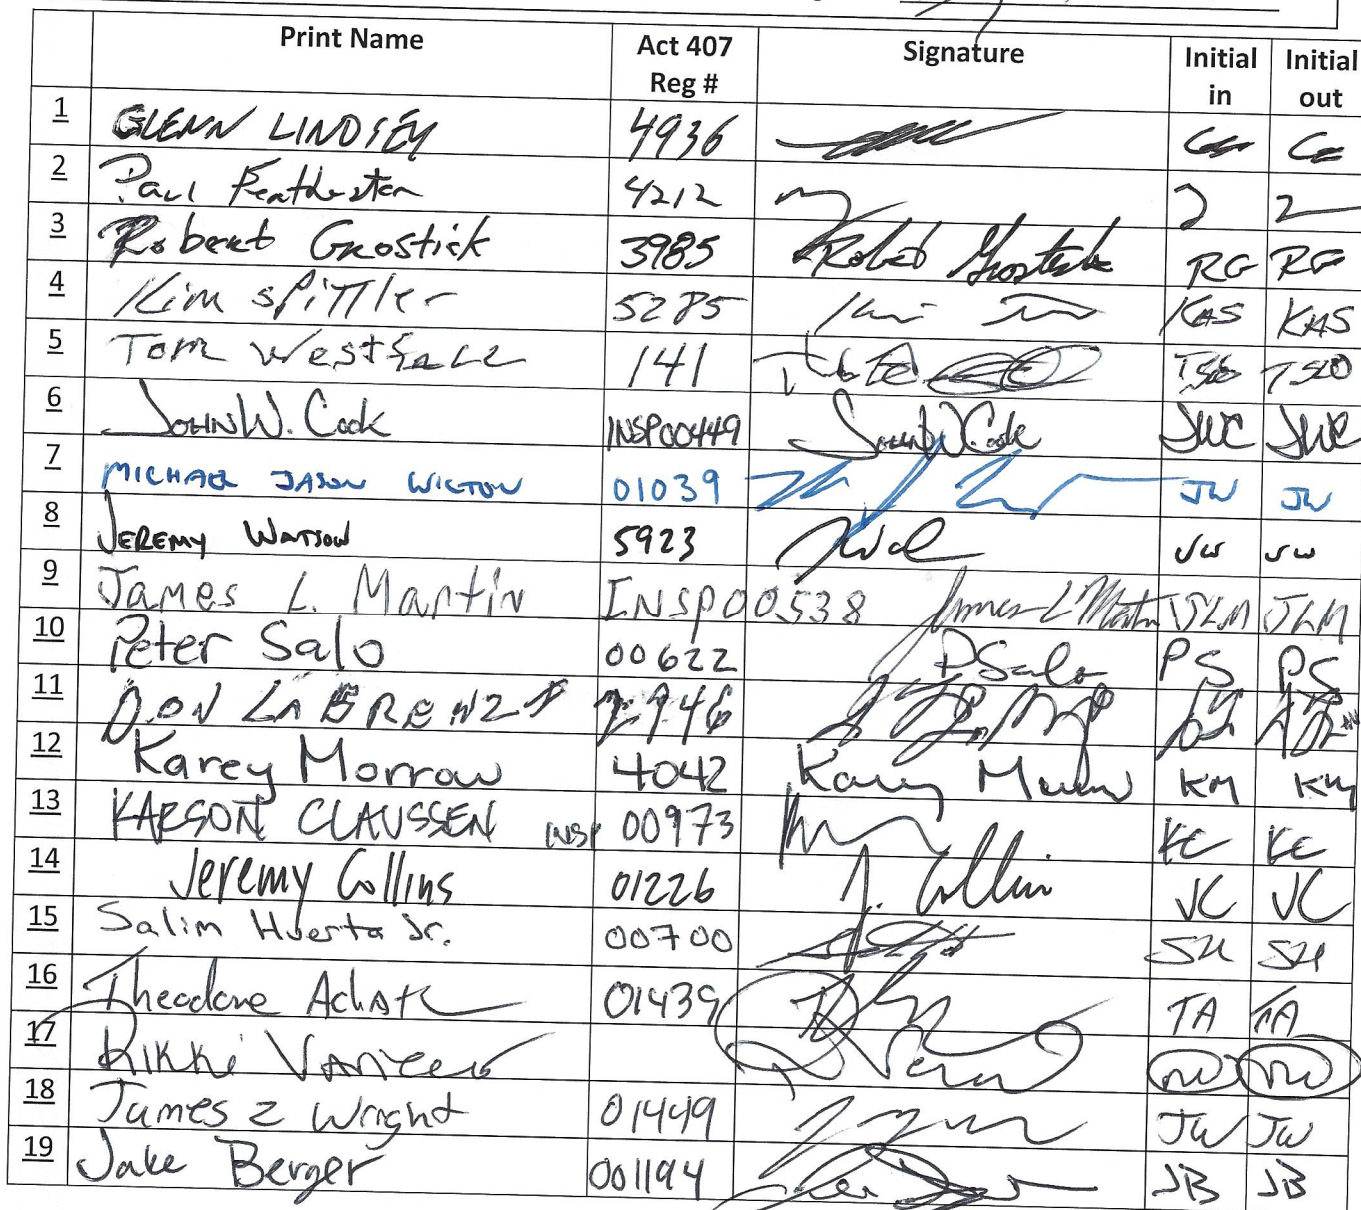 Print Name Act 407 Reg # Signature Initial in Initial out
1 GLENN LINDSEY 4936
2 Paul Featherston 4212
3 Robert Grostick 3985 Robert Grostick RG RG
4 Kim SPITTler 5285 KAS KAS
5 Tom Westfall 141
6 JOHN W. Cook INSP00449 John W. Cook JWC JWC
7 MICHAEL JASON WILTON 01039 JW JW
8 JEREMY WATSON 5923 JW JW
9 James L. Martin INSP00538 James L Martin JLM JLM
10 Peter Salo 00622 PSalo PS PS
11 DON LABRENZ
12 Karey Morrow 4042 Karey Morrow KM KM
13 KARSON CLAUSSEN INSP 00973 KC KC
14 Jeremy Collins 01226 J. Collins JC JC
15 Salim Huerta Jr. 00700 SH SH
16 Theodore 01439 TA TA
17 Rikki
18 James Z Wright 01449 JW JW
19 Jake Berger 001194 JB JB